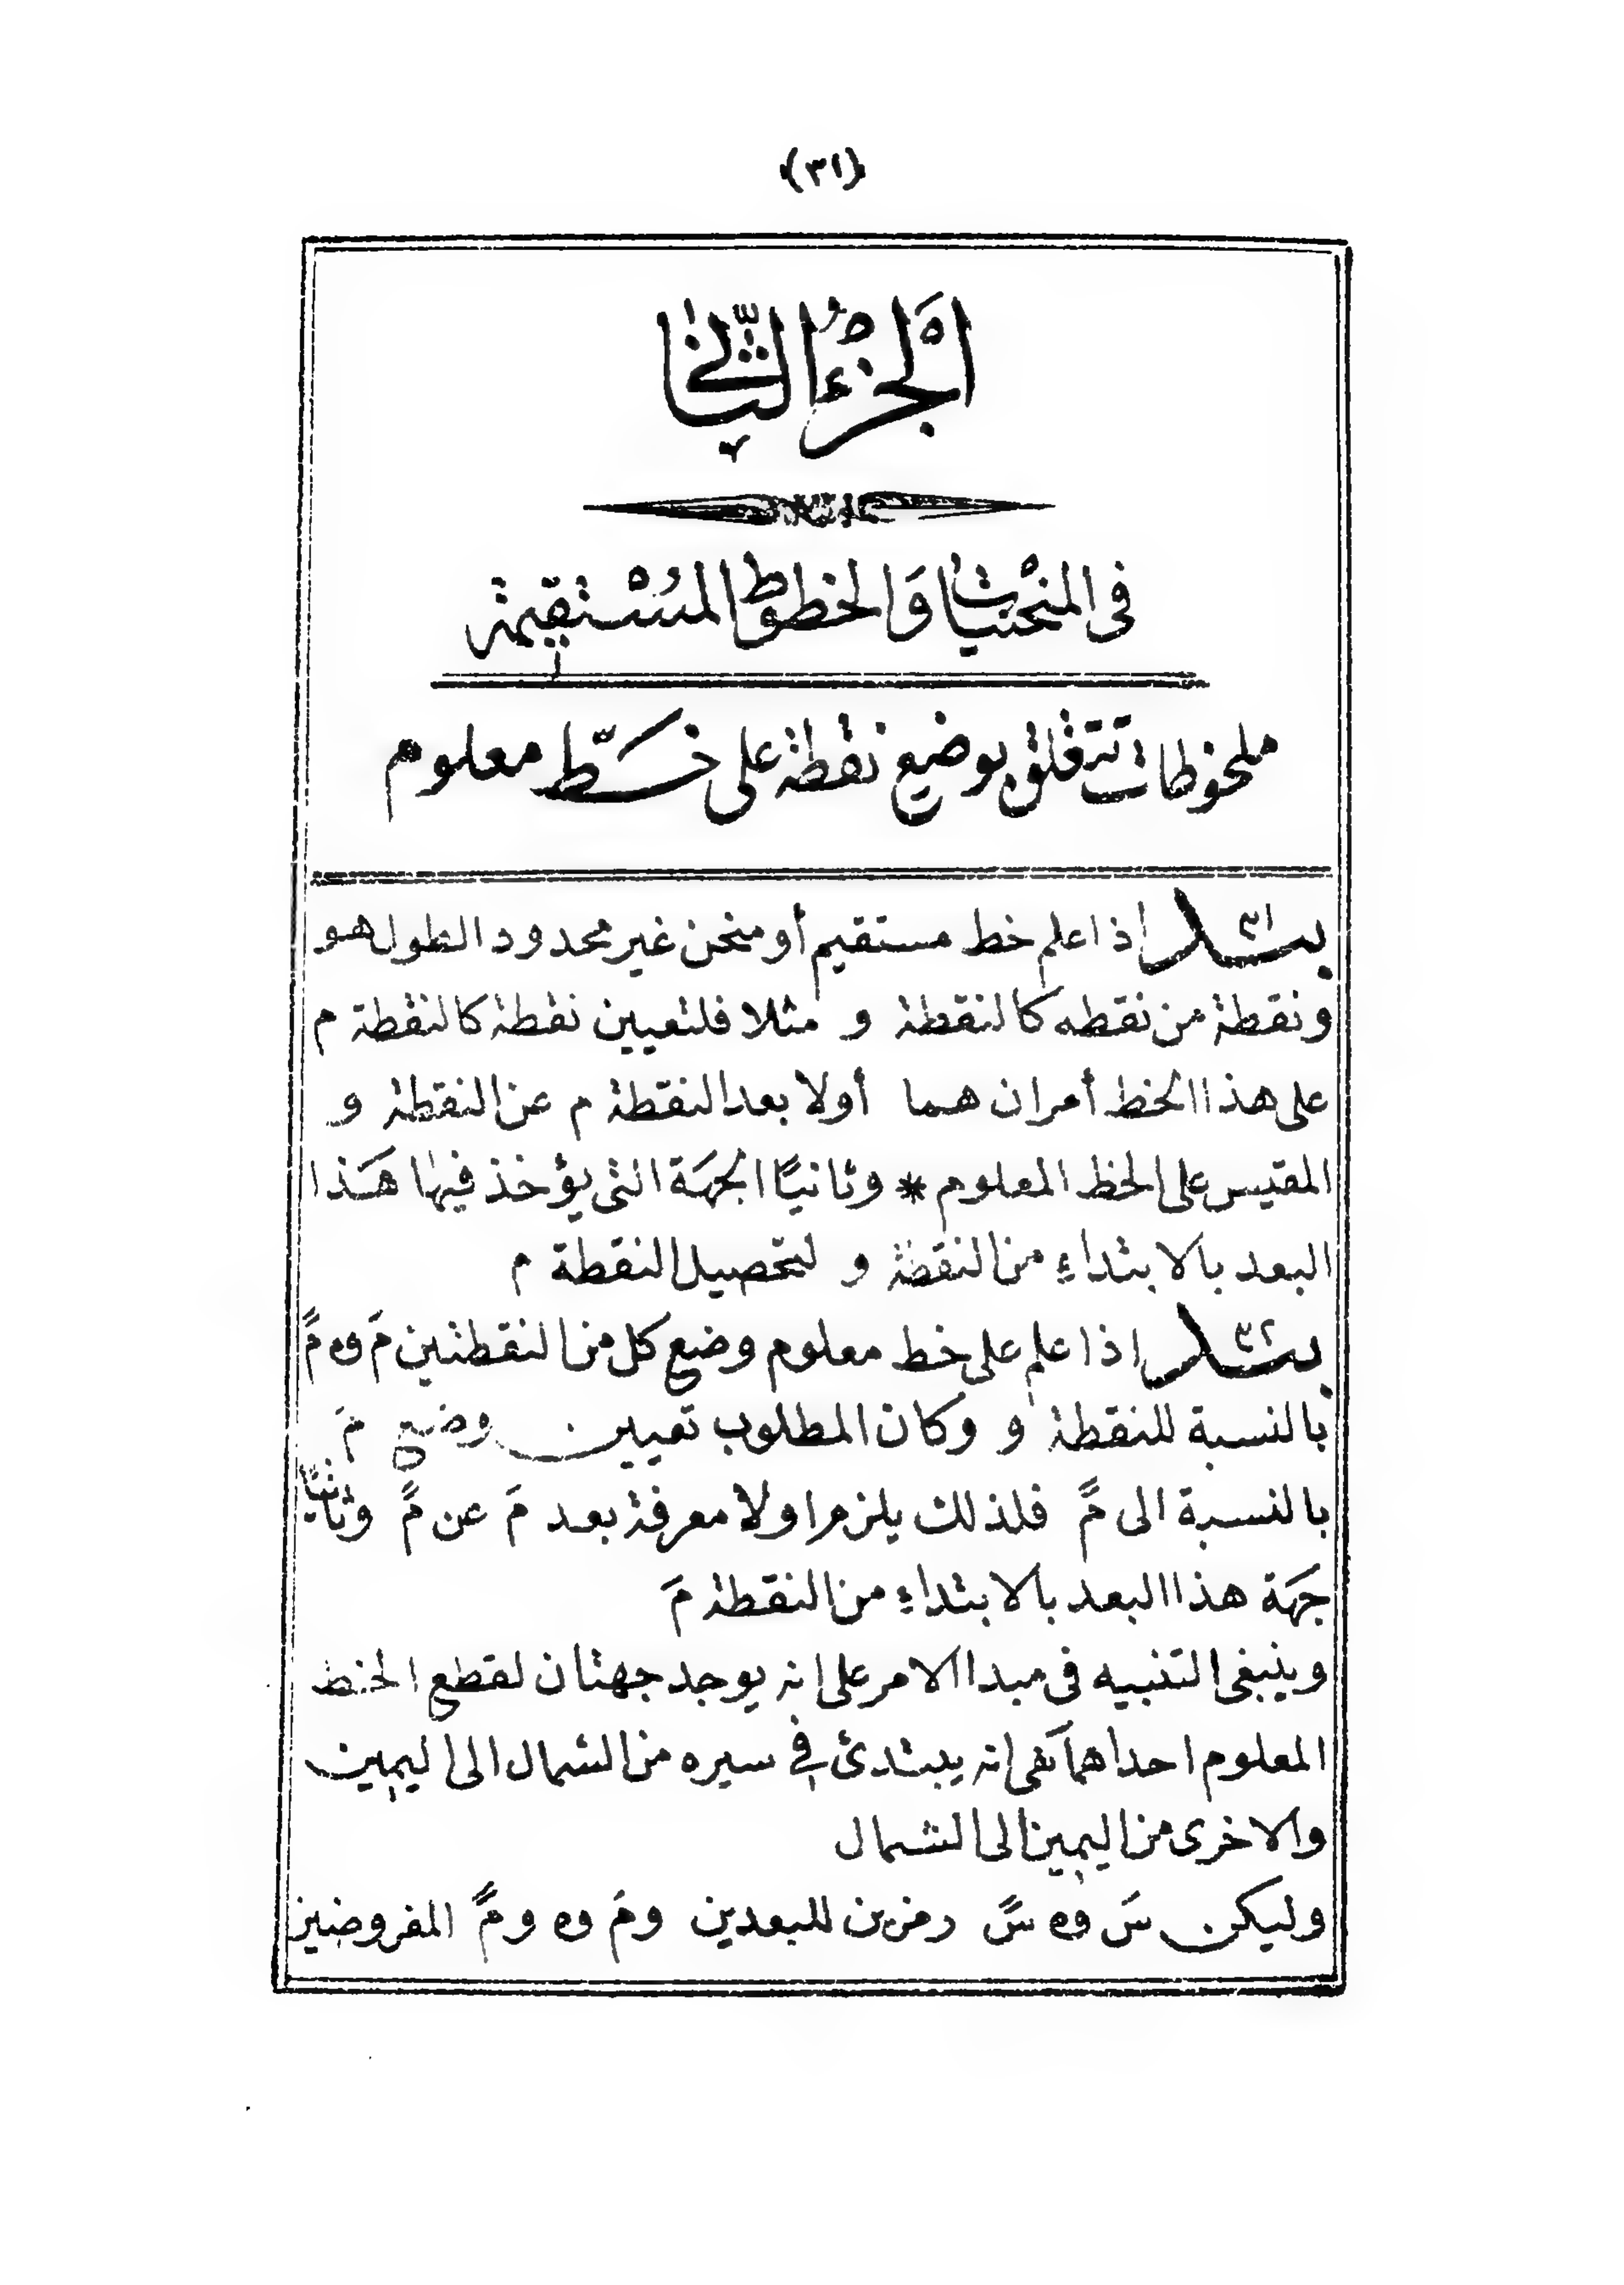 (٣١)
اَلْجُزْءُ الثَّانِي
فى المنْحنيات وَالخطوط المُسْتقيمة
ملحوظات تتعلق بوضع نقطة على خطّ معلوم
بند ٣١ اذا علم خط مستقيم أو منحن غير محدود الطول هو
ونقطة من نقطه كالنقطة و مثلا فلتعيين نقطة كالنقطة م
على هذا الخط أمران هما أولا بعد النقطة م عن النقطة و
المقيس على الخط المعلوم * وثانيًا الجهَة التى يؤخذ فيها هَذا
البعد بالابتداءِ من النقطة و لتحصيل النقطة م
بند ٣٢ اذا علم على خط معلوم وضع كل من النقطتين مَ وه مً
بالنسبة للنقطة و وكان المطلوب تعيين وضع مَ
بالنسبة الى مً فلذلك يلزم اولا معرفة بعد مَ عن مً وثانيًا
جهَة هذا البعد بالابتداءِ من النقطة مَ
وينبغى التنبيه فى مبدا الامر على انه يوجد جهتان لقطع الخط
المعلوم احداهما هى انه يبتدئ فى سيره من الشمال الى اليمين
والاخرى من اليمين الى الشمال
وليكن سَ وه سً رمزين للبعدين ومَ وه ومً المفروضين